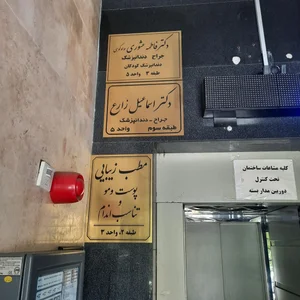 دکتر فاطمه
جراح دندانپزشک
دندانپزشک کودکان
طبقه ۳ واحد ۵
دکتر اسماعیل زارع
جراح - دندانپزشک
طبقه سوم واحد ۵
مطب زیبایی
پوست و مو
و
تناسب اندام
طبقه ۲، واحد ۳
کلیه مشاعات ساختمان
تحت کنترل
دوربین مدار بسته